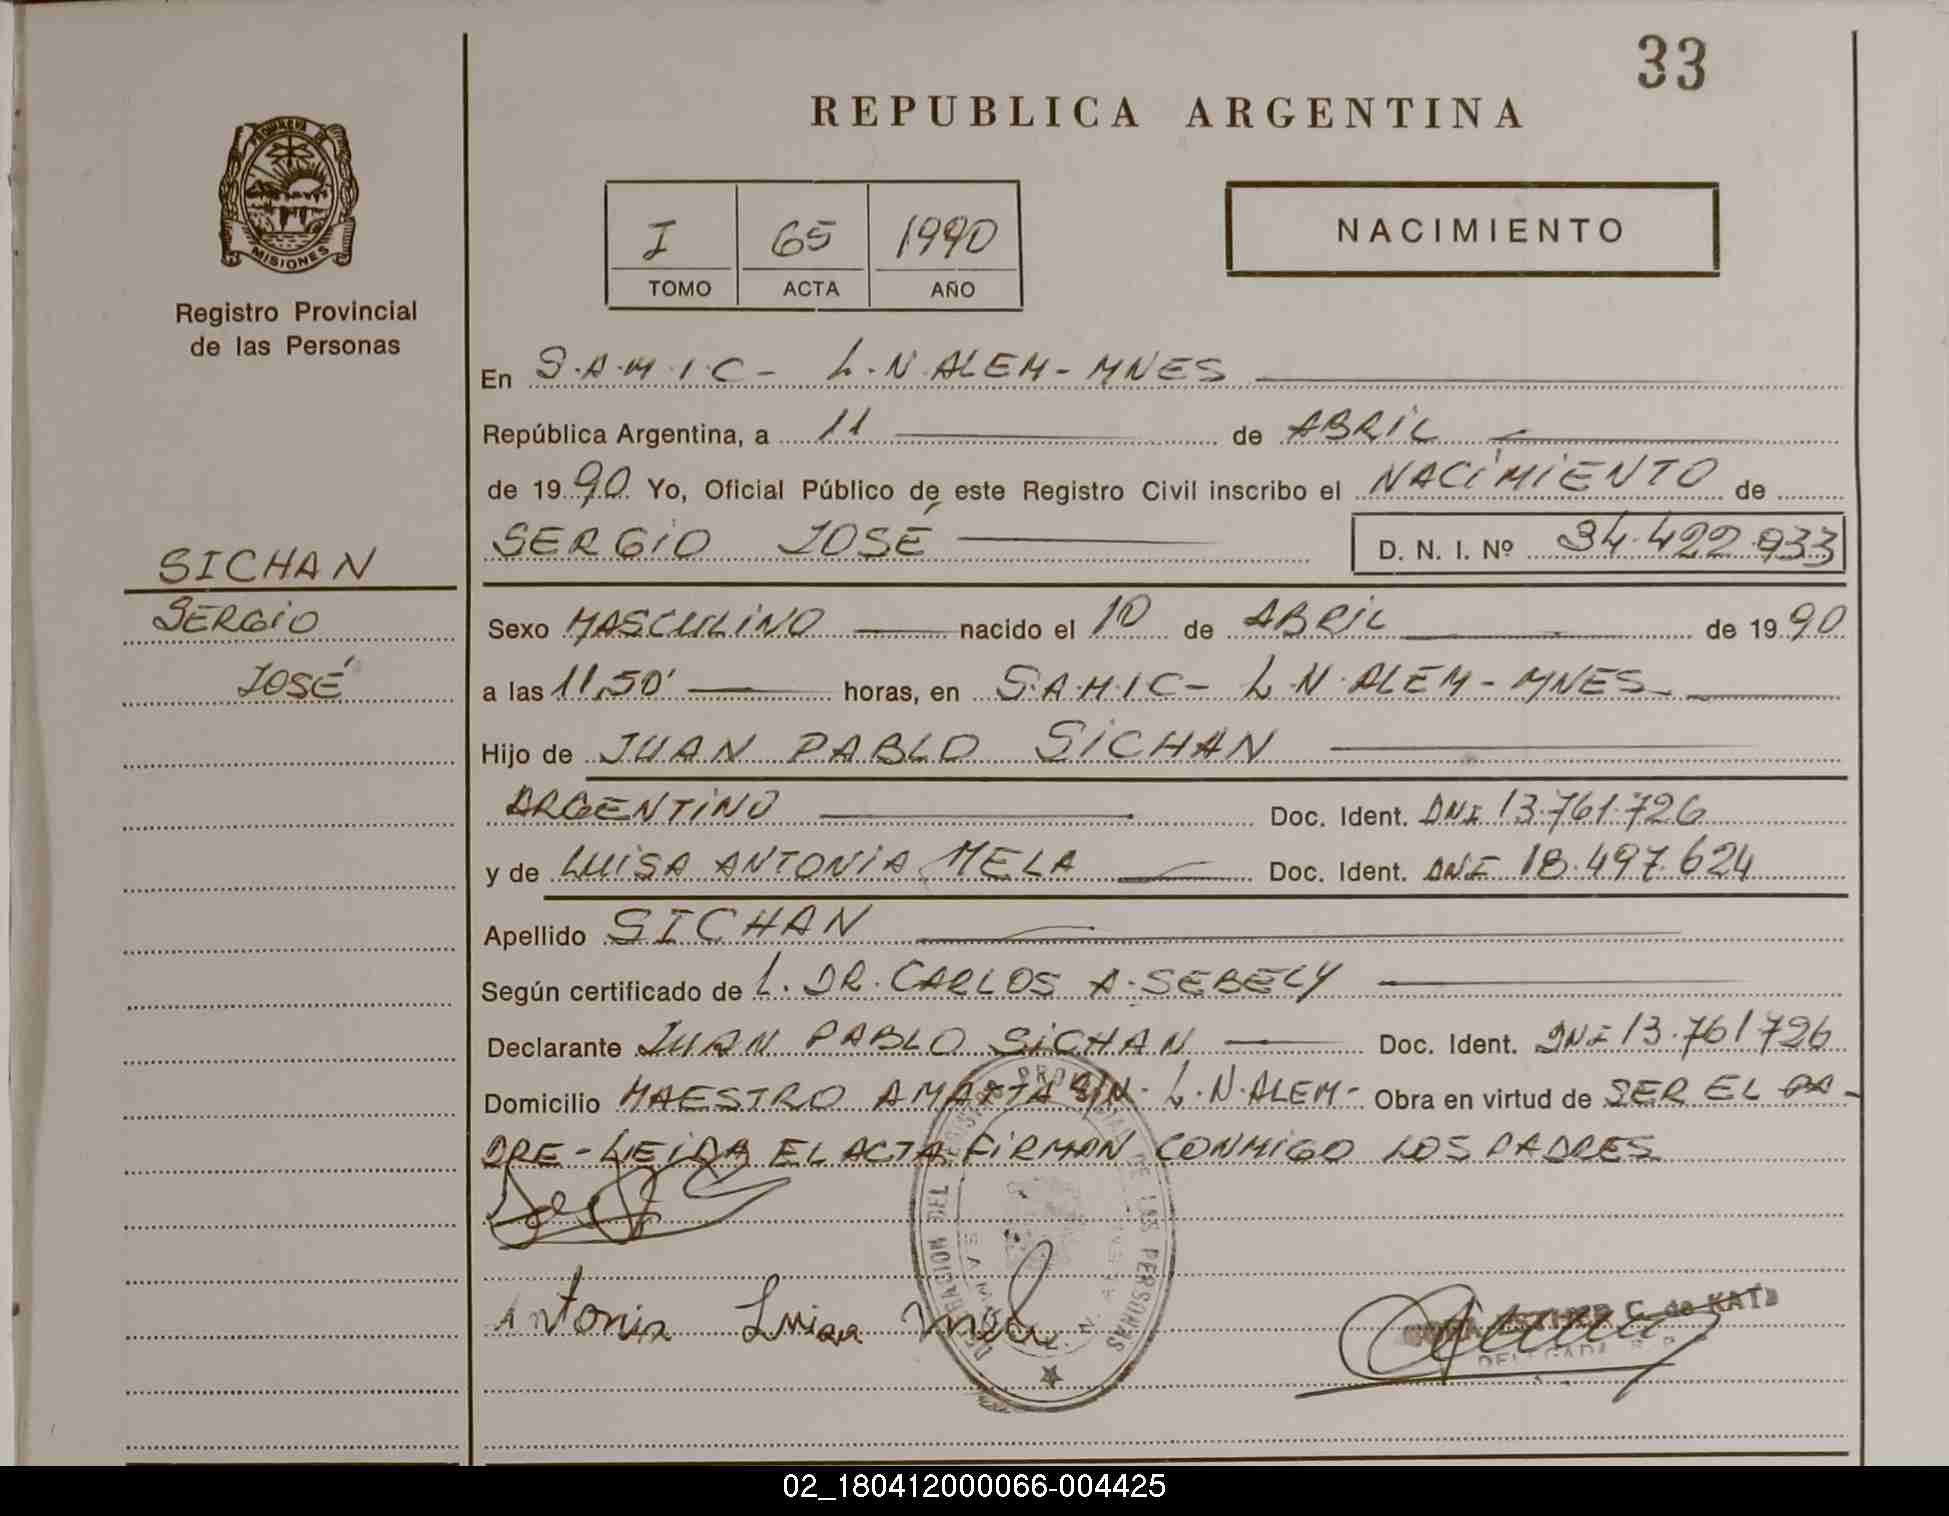 33
REPUBLICA ARGENTINA
MISIONES
Registro Provincial
de las Personas
I 65 1990
TOMO ACTA AÑO
NACIMIENTO
En S.A.M.I.C- L.N.ALEM-MNES
República Argentina, a 11 de ABRIL
de 1990 Yo, Oficial Público de este Registro Civil inscribo el NACIMIENTO de
SERGIO JOSÉ D. N. I. Nº 34.422.933
SICHAN
SERGIO
JOSÉ
Sexo MASCULINO nacido el 10 de ABRIL de 1990
a las 11,50' horas, en S.A.M.I.C- L.N.ALEM-MNES
Hijo de JUAN PABLO SICHAN
ARGENTINO Doc. Ident. DNI 13.761.726
y de LUISA ANTONIA MELA Doc. Ident. DNI 18.497.624
Apellido SICHAN
Según certificado de L. DR. CARLOS A. SEBELY
Declarante JUAN PABLO SICHAN Doc. Ident. DNI 13.761726
Domicilio MAESTRO S/N- L.N.ALEM- Obra en virtud de SER EL PA-
DRE-LEIDA EL ACTA FIRMAN CONMIGO LOS PADRES
Antonia Luisa Mela
C. de KATZ
DELEGADA
DE LAS PERSONAS
02_180412000066-004425